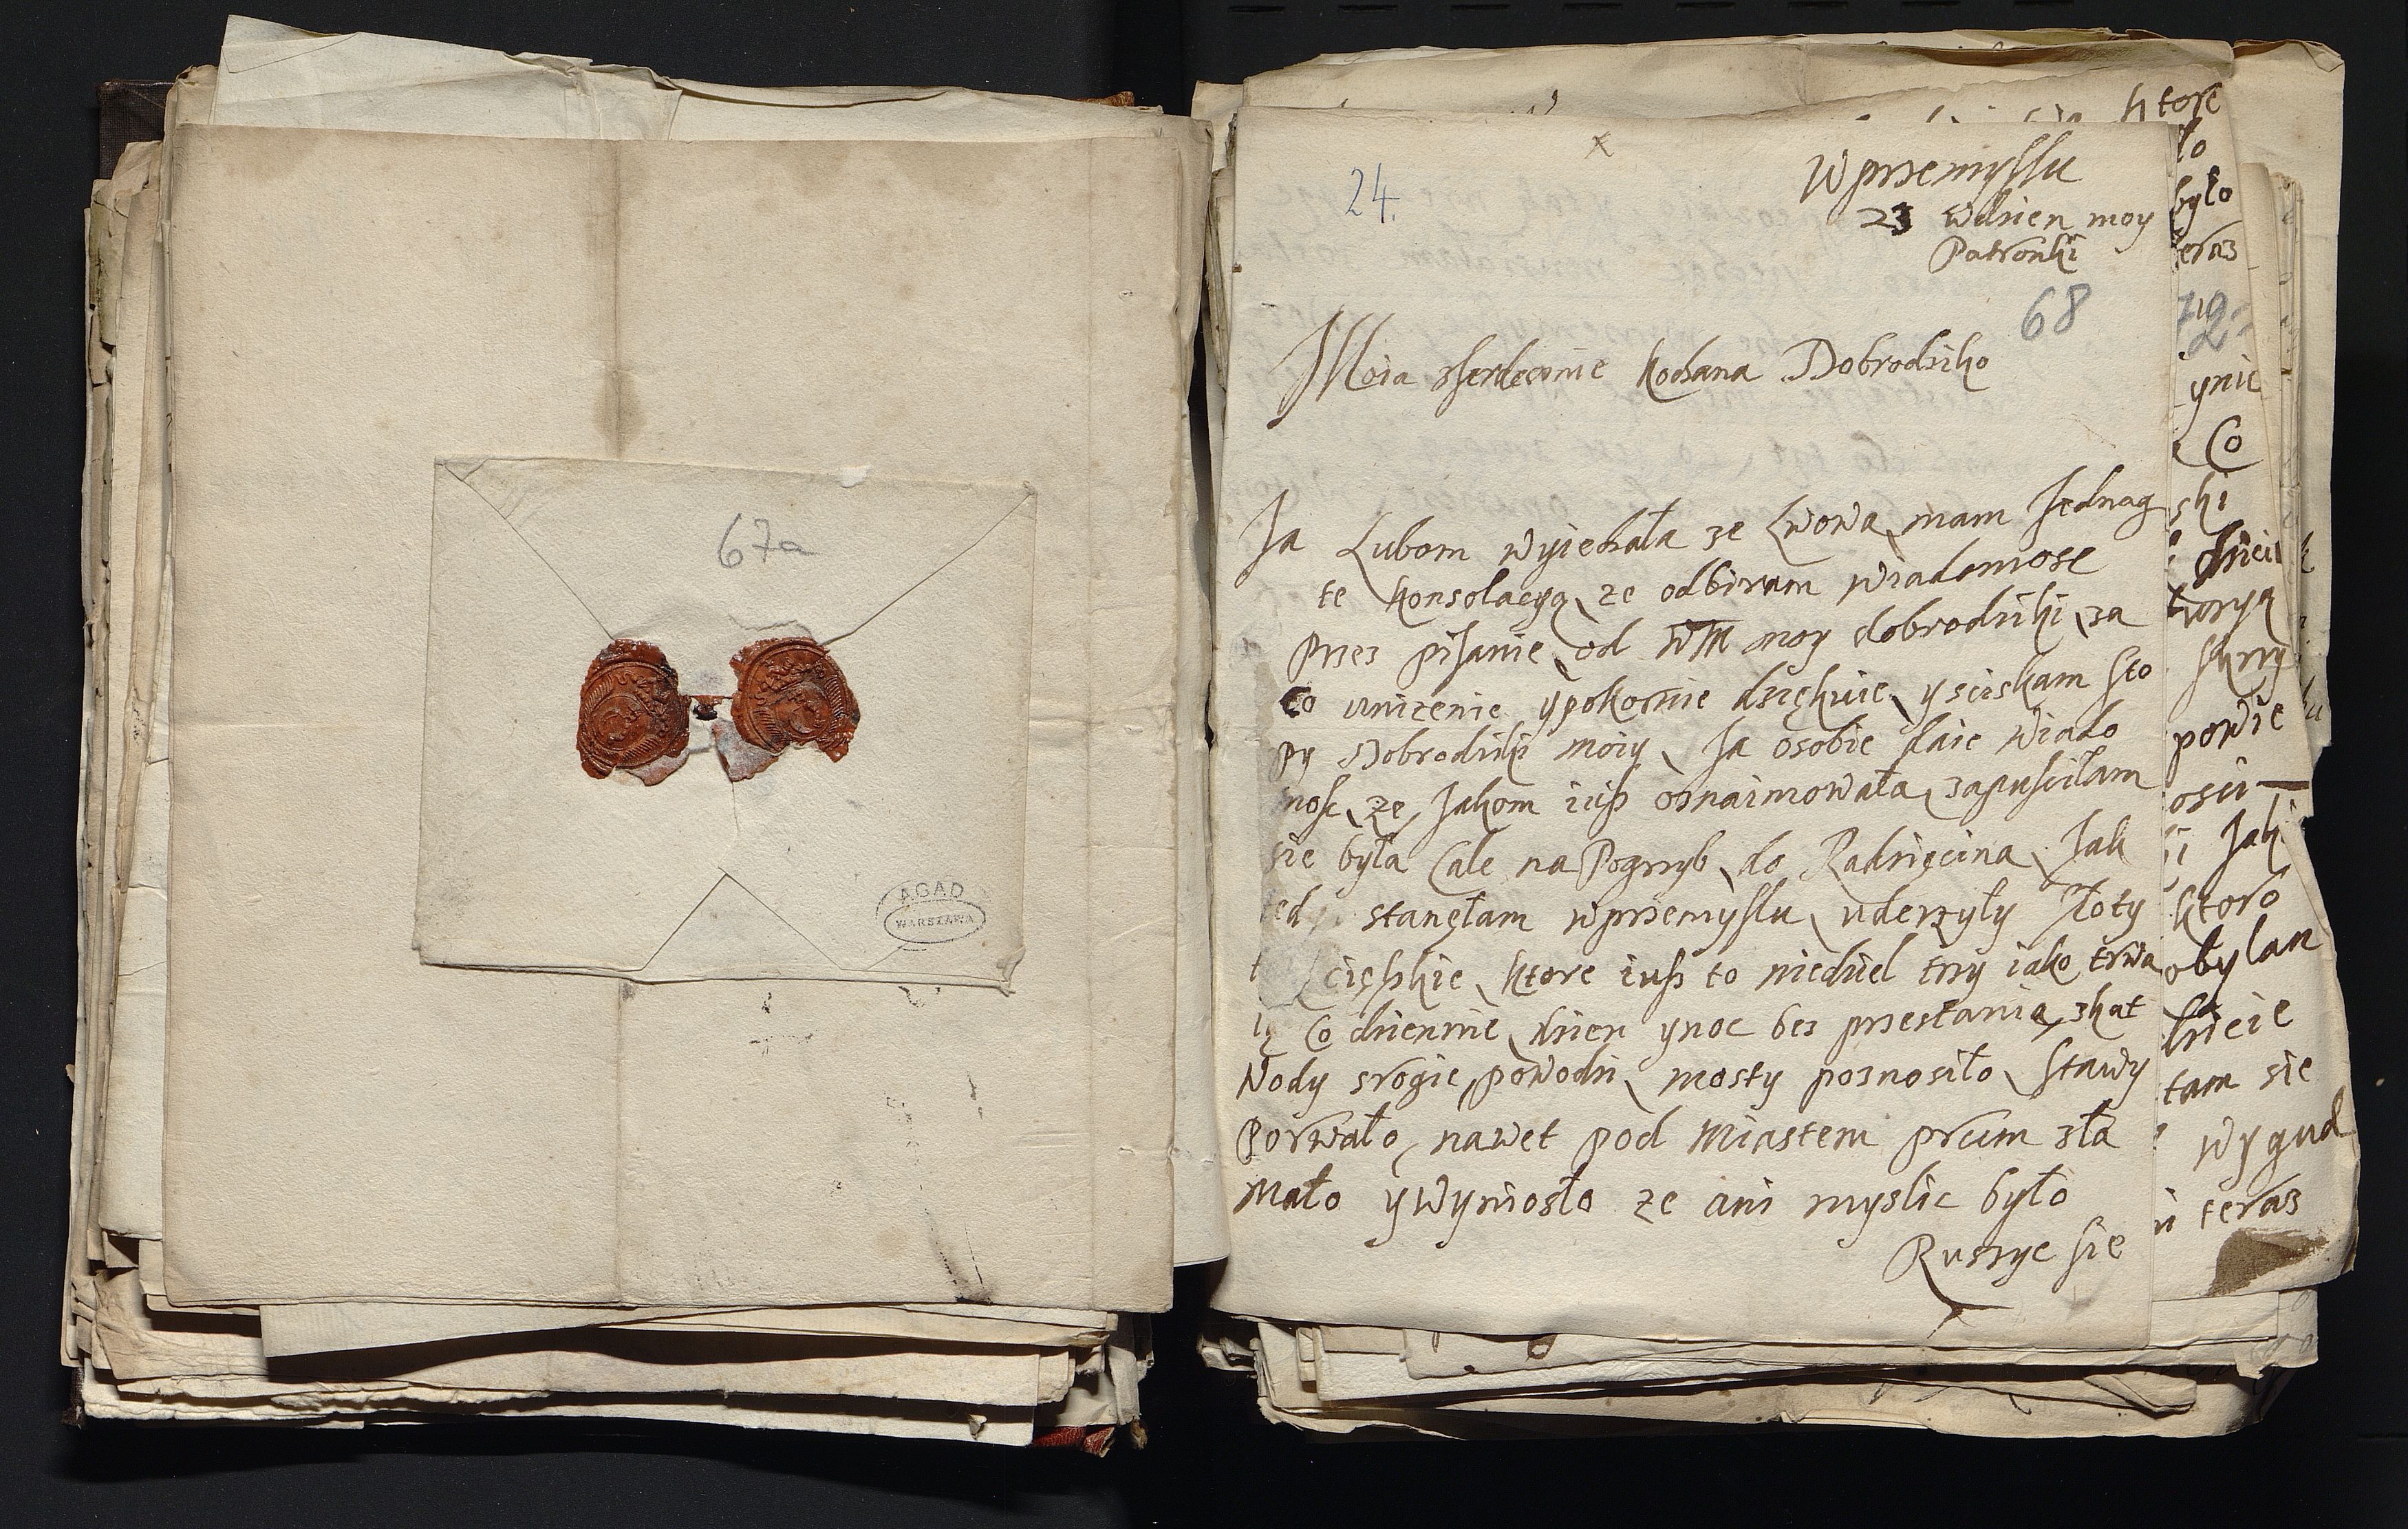 67a
AGAD
WARSZAWA
24.
x
W przemyslu
23 wdzien moy
Patronki
68
Moia serdecznie kochana Dobrodziko
Ja Lubom wyiechała ze Lwowa mam Jednag
te konsolacyą ze odbiram wiadomosc
przez pisanie od WM moy dobrodziki za
co unizenie ypokornie dziękuie, y sciskam sto
py Dobrodziki moiy Ja osobie daie wiado
nosc, ze Jakom iusz oznaimowała zapusciłam
sie była Cale na Pogrzyb do Radzięcina Jak
stanęłam wprzemyslu, uderzyły słoty
cięszkie, ktore iusz to niedziel trzy iako trwa
ią Co dziennie dzien ynoc bez przestania, zkąt
Wody srogie, powodzi mosty poznosiło, stawy
porwało, nawet pod Miastem prum zła
mało ywyniosło ze ani myslic było
Ruszyc sie
ktore
ło
było
teraz
72
ynie
Co
ski
powie
osci
Jak
ktoro
obylan
tam sie
wygud
teraz